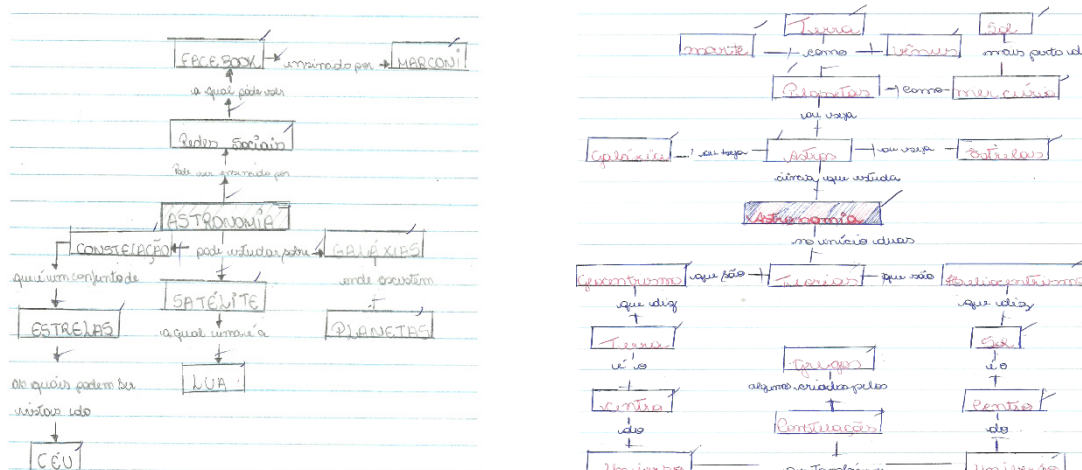 FACEBOOK ensinado por MARCONI
a qual pode ser
Redes Sociais
Pode ser ensinado por
ASTRONOMIA
CONSTELAÇÃO pode estudar sobre GALÁXIAS
que é um conjunto de
SATÉLITE
onde existem
ESTRELAS
a qual uma é a
PLANETAS
LUA
as quais podem ser
vistas do
CÉU
Terra
Sol
marte como Vênus
mais perto do
Planetas como mercúrio
ou seja
Galáxia ou seja Astros ou seja Estrelas
ciência que estuda
Astronomia
no início duas
Geocentrismo que são Teorias que são Heliocentrismo
que diz
que diz
Terra
Sol
é o
é o
Gregos
algumas criadas pelos
Centro
Centro
Constelações
do
do
Universo
Universo